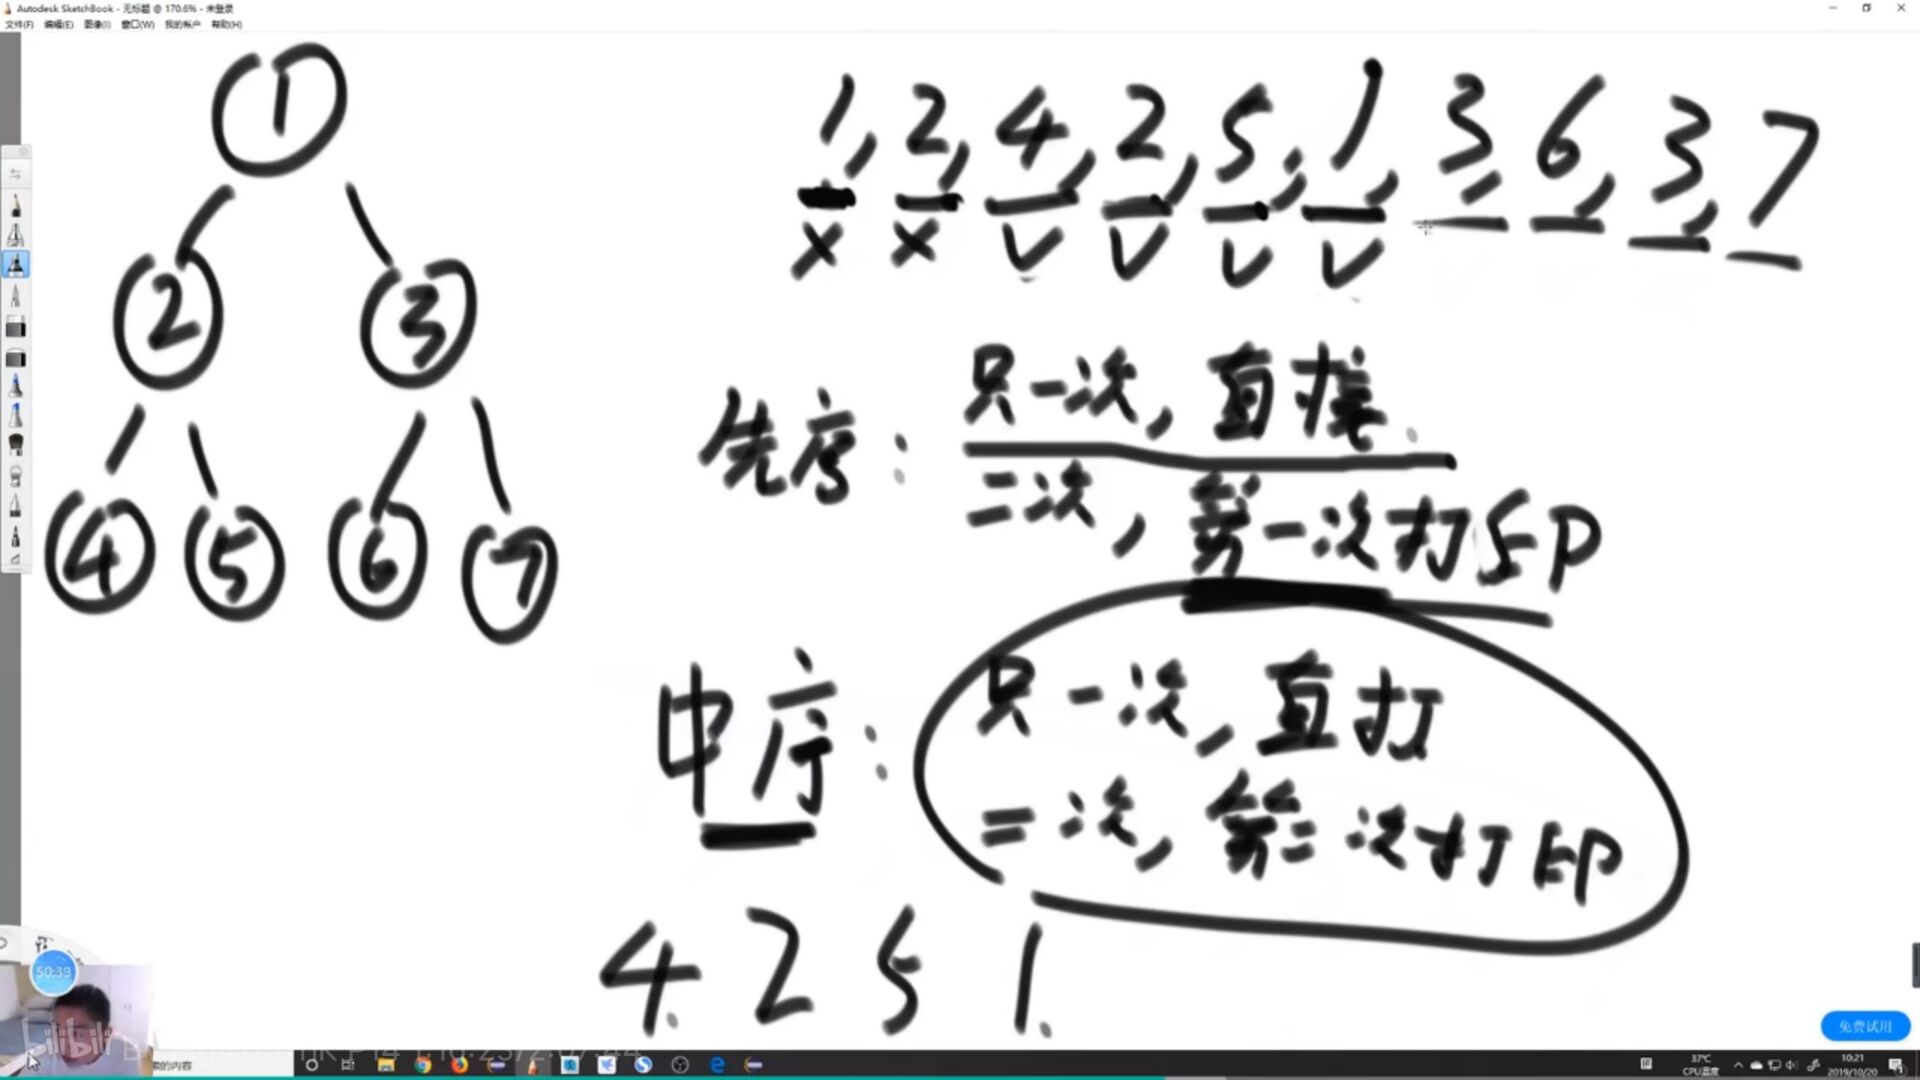 Autodesk SketchBook - 无标题 @ 170.6% - 未登录
文件(F) 编辑(E) 图像(I) 窗口(W) 我的帐户 帮助(H)
1
2 3
4 5 6 7
1, 2, 4, 2, 5, 1, 3, 6, 3, 7
x x v v v v
先序: 只一次, 直接.
二次, 第一次打印
中序: 只一次, 直打
二次, 第二次打印
4. 2 5 1.
50:38
bilibili
免费试用
索的内容
37°C
CPU温度
10:21
2019/10/20